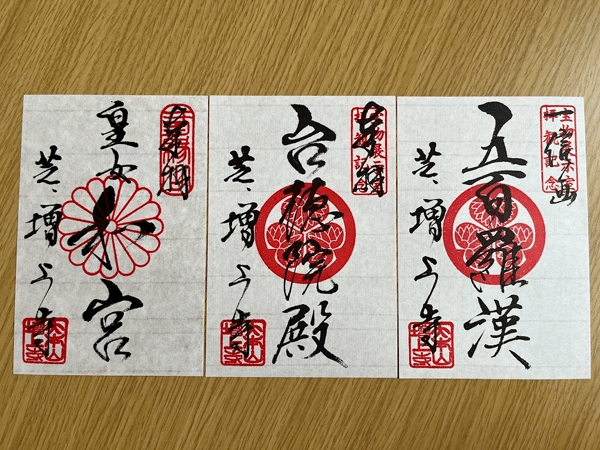 五百羅漢
芝 増上寺
奉拝
台徳院殿
芝 増上寺
奉拝
皇女和宮
芝 増上寺